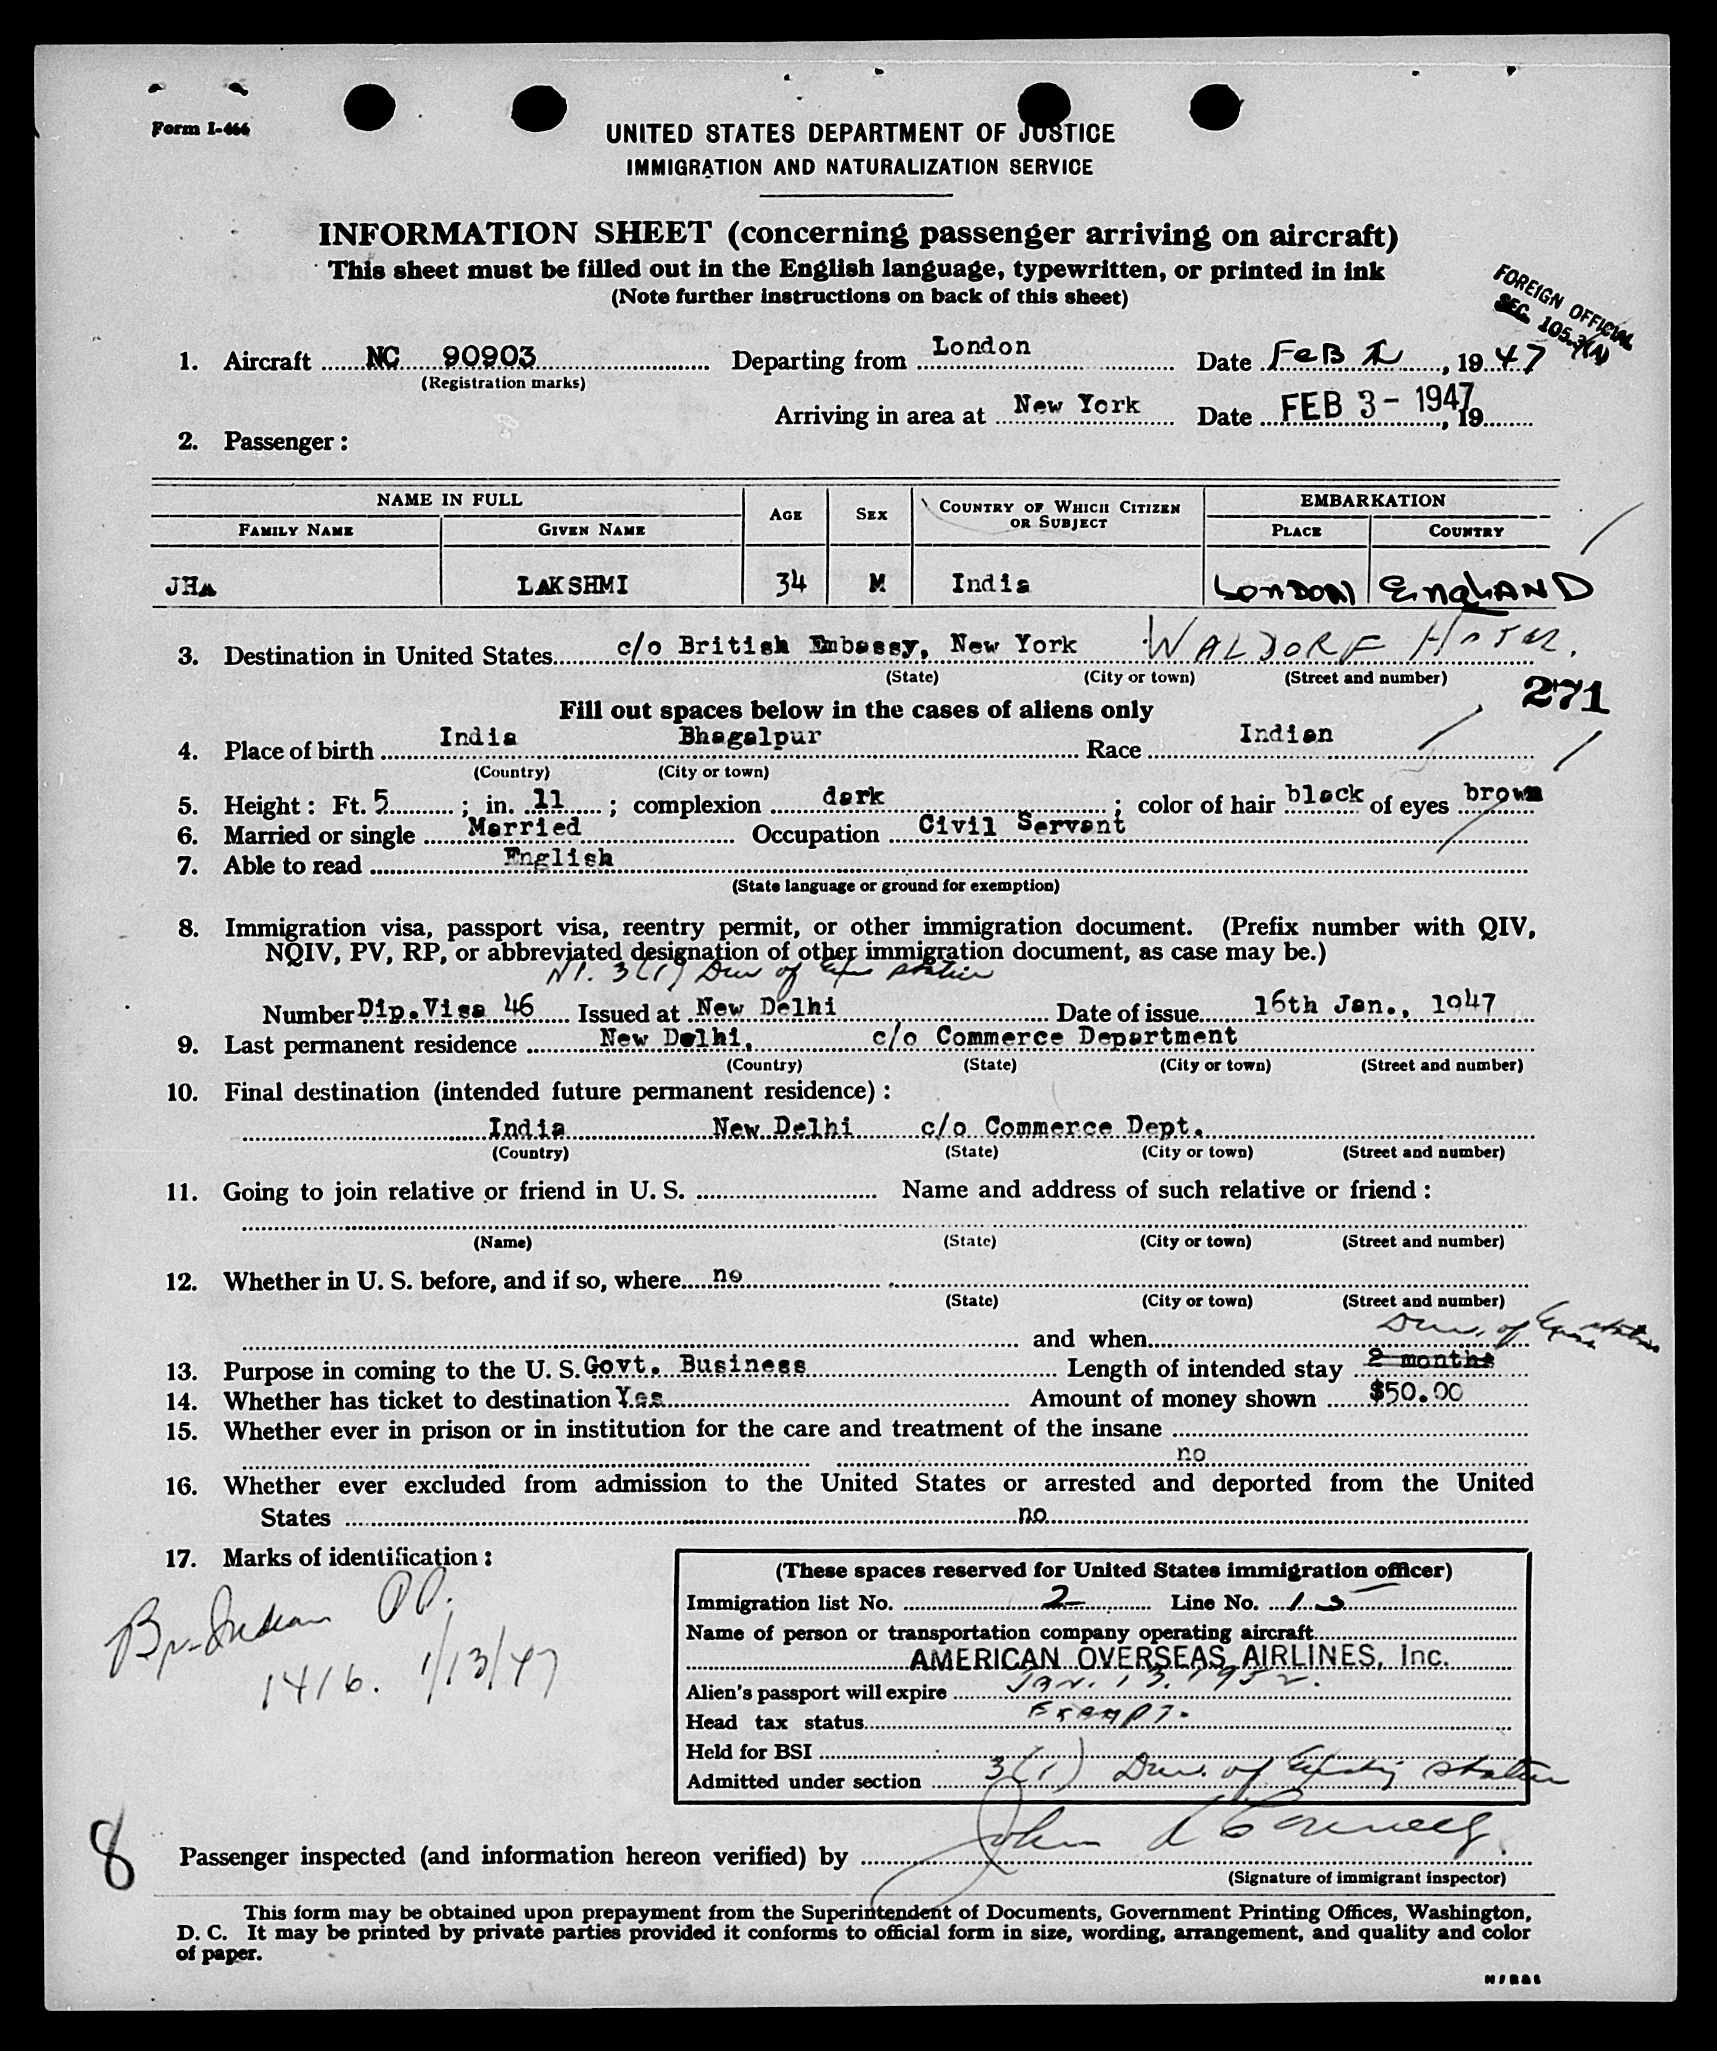 Form I-466
UNITED STATES DEPARTMENT OF JUSTICE
IMMIGRATION AND NATURALIZATION SERVICE
INFORMATION SHEET (concerning passenger arriving on aircraft)
This sheet must be filled out in the English language, typewritten, or printed in ink
(Note further instructions on back of this sheet)
FOREIGN OFFICIAL
SEC. 105.3(A)
1. Aircraft NC 90903 Departing from London Date FEB , 1947
(Registration marks)
Arriving in area at New York Date FEB 3 - 1947, 19
2. Passenger:
NAME IN FULL AGE SEX COUNTRY OF WHICH CITIZEN OR SUBJECT EMBARKATION
FAMILY NAME GIVEN NAME PLACE COUNTRY
JHA LAKSHMI 34 M India LONDON ENGLAND
3. Destination in United States c/o British Embassy, New York WALDORF HOTEL.
(State) (City or town) (Street and number)
271
Fill out spaces below in the cases of aliens only
4. Place of birth India Bhagalpur Race Indian
(Country) (City or town)
5. Height: Ft. 5; in. 11; complexion dark; color of hair black of eyes brown
6. Married or single Married Occupation Civil Servant
7. Able to read English
(State language or ground for exemption)
8. Immigration visa, passport visa, reentry permit, or other immigration document. (Prefix number with QIV,
NQIV, PV, RP, or abbreviated designation of other immigration document, as case may be.)
3(1) Dur of status
Number Dip.Visa 46 Issued at New Delhi Date of issue 16th Jan., 1947
9. Last permanent residence New Delhi, c/o Commerce Department
(Country) (State) (City or town) (Street and number)
10. Final destination (intended future permanent residence):
India New Delhi c/o Commerce Dept.
(Country) (State) (City or town) (Street and number)
11. Going to join relative or friend in U. S. Name and address of such relative or friend:
(Name) (State) (City or town) (Street and number)
12. Whether in U. S. before, and if so, where no
(State) (City or town) (Street and number)
Dur. of status
and when
13. Purpose in coming to the U. S. Govt. Business Length of intended stay 2 months
14. Whether has ticket to destination Yes Amount of money shown $50.00
15. Whether ever in prison or in institution for the care and treatment of the insane
no
16. Whether ever excluded from admission to the United States or arrested and deported from the United
States no
17. Marks of identification:
Br-Indian PP.
1416. 1/13/47
(These spaces reserved for United States immigration officer)
Immigration list No. 2 Line No. 15
Name of person or transportation company operating aircraft
AMERICAN OVERSEAS AIRLINES, Inc.
Alien's passport will expire Jan. 13. 1952.
Head tax status Exempt.
Held for BSI
Admitted under section 3(1) Dur. of status
8
Passenger inspected (and information hereon verified) by John
(Signature of immigrant inspector)
This form may be obtained upon prepayment from the Superintendent of Documents, Government Printing Offices, Washington,
D. C. It may be printed by private parties provided it conforms to official form in size, wording, arrangement, and quality and color
of paper.